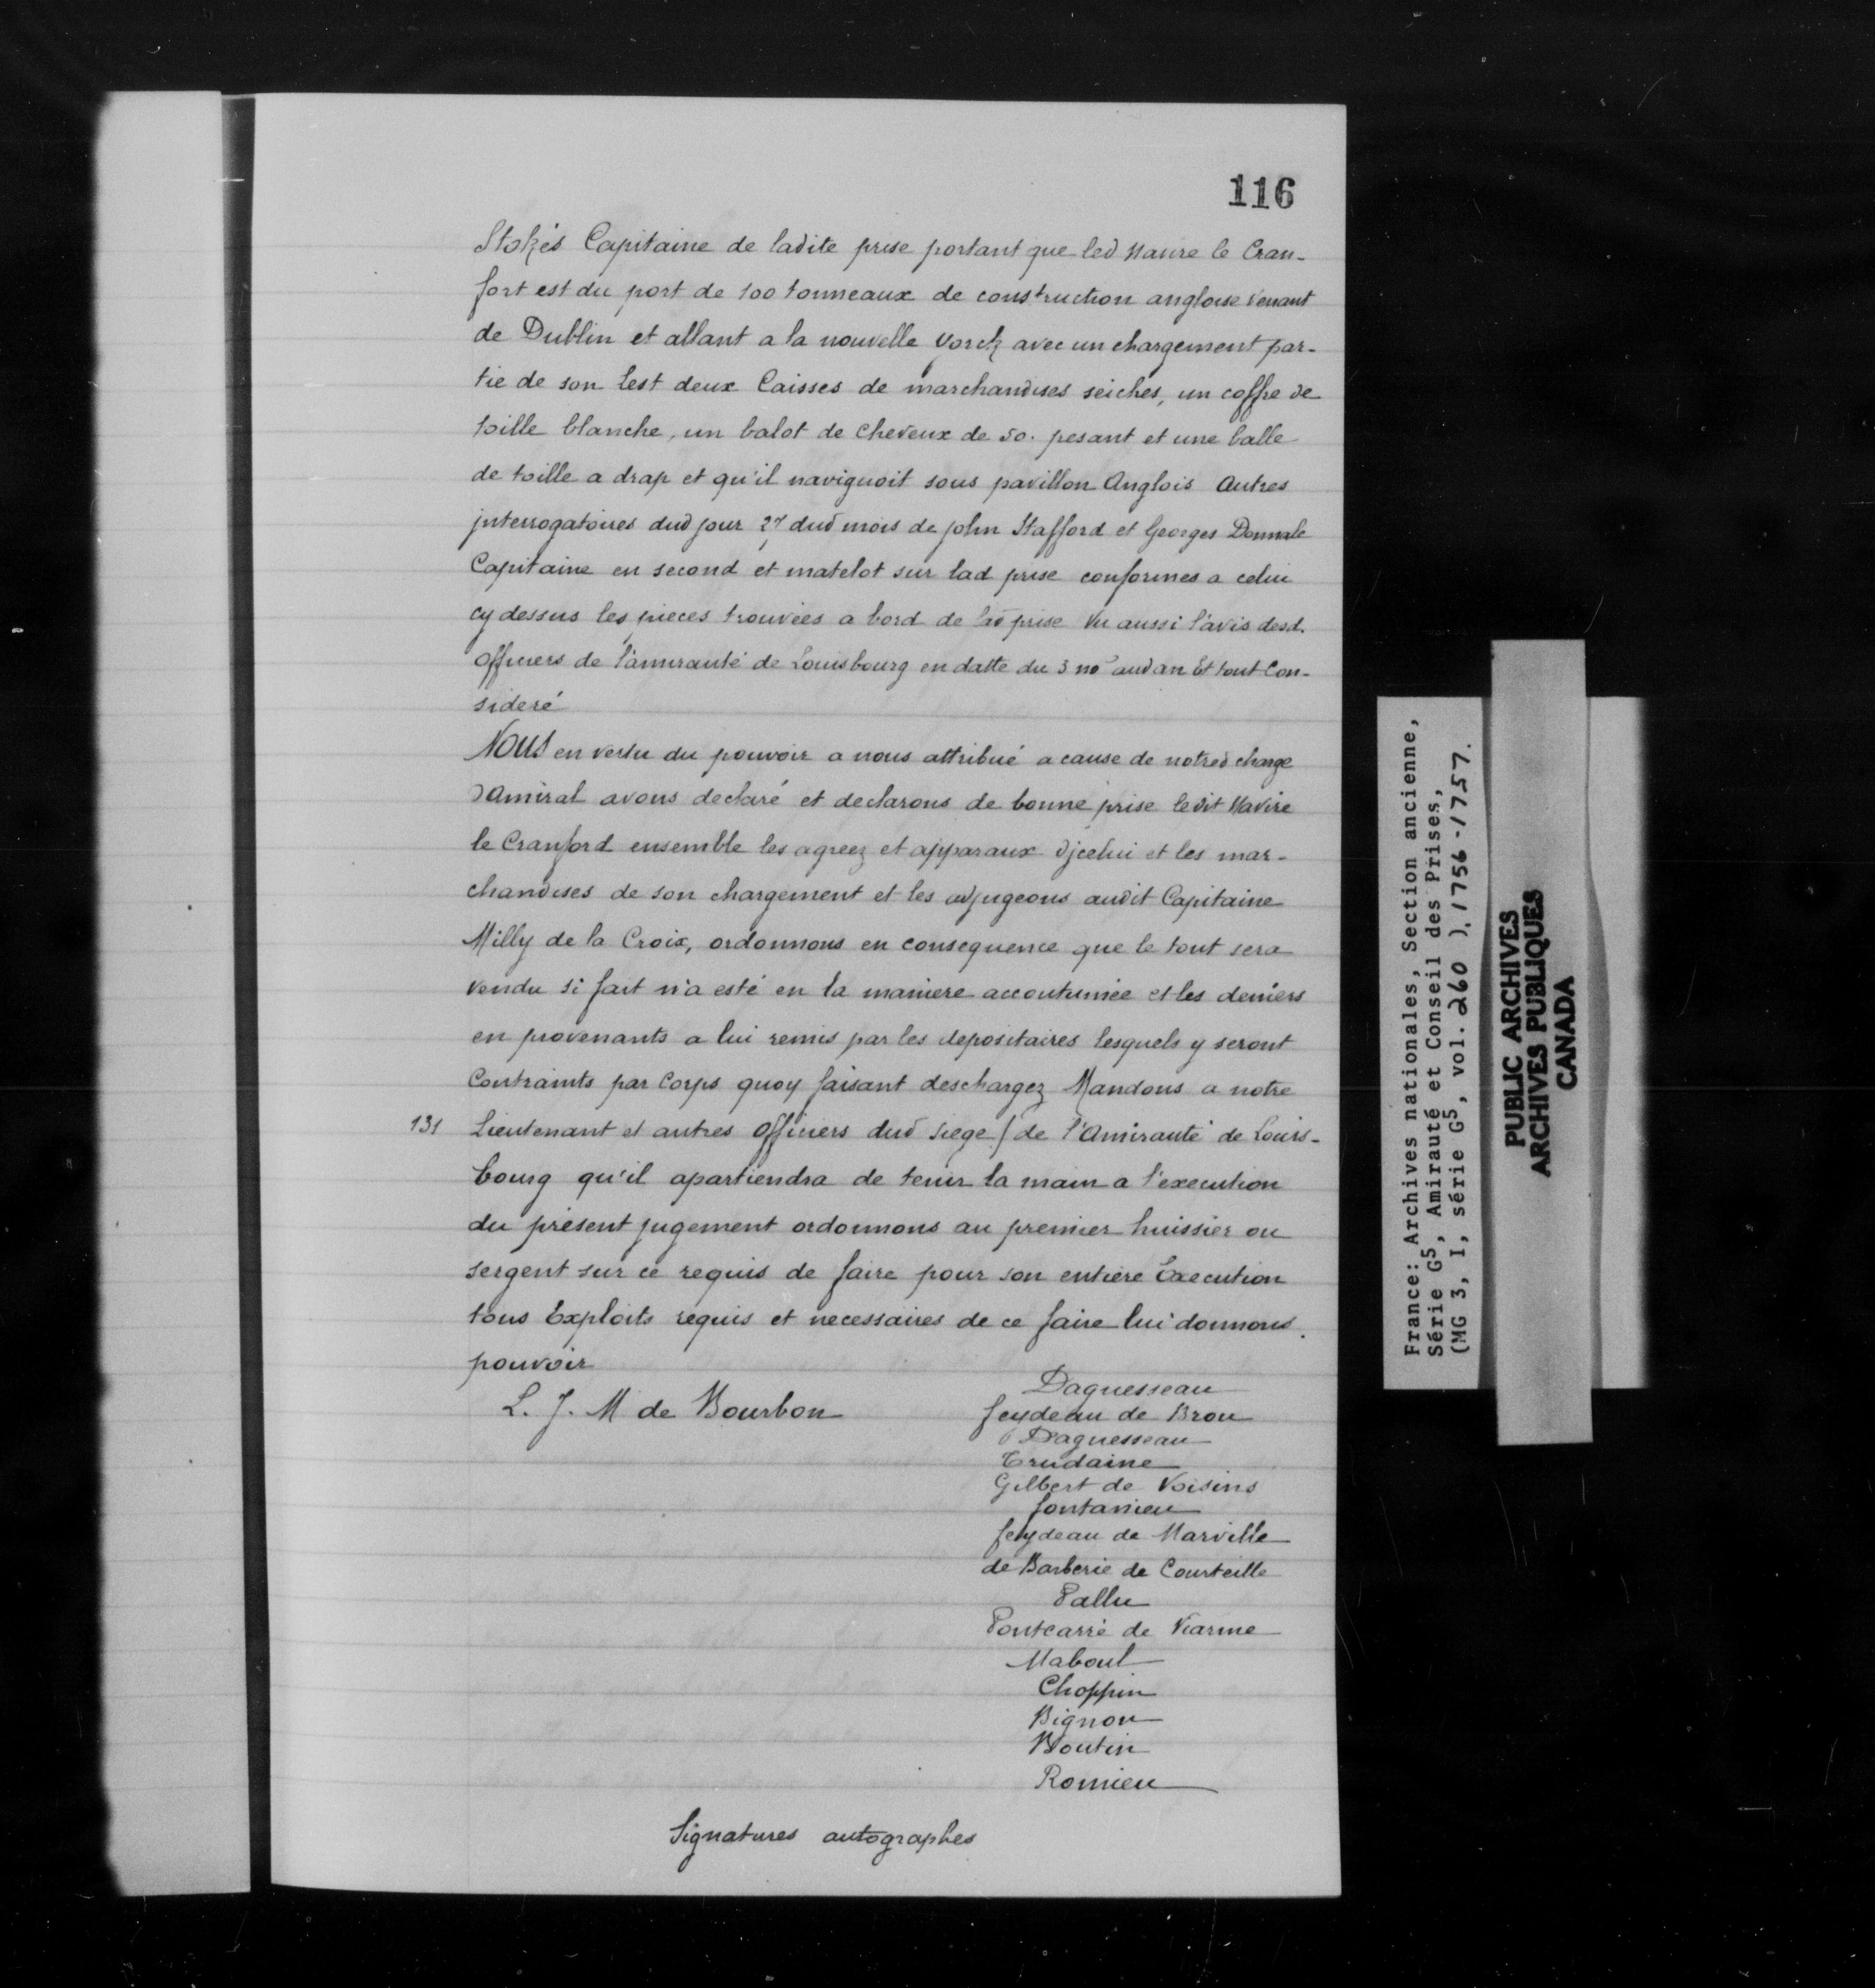 116
Stokés Capitaine de ladite prise portant que led Navire le Cran-
fort est du port de 100 tonneaux de construction angloise venant
de Dublin et allant a la nouvelle yorck avec un chargement par-
tie de son lest deux Caisses de marchandises seiches, un coffre de
toille blanche, un balot de cheveux de 50. pesant et une balle
de toille a drap et qu'il naviguoit sous pavillon Anglois Autres
jnterrogatoires dud jour 27 dud mois de john Stafford et Georges Donnale
Capitaine en second et matelot sur lad prise conformes a celui
cy dessus les pieces trouvées a bord de lad prise Vu aussi l'avis desd.
Officiers de l'amirauté de Louisbourg en datte du 3 no aud an Et tout Con-
sideré
NOUS en vertu du pouvoir a nous attribué a cause de notred charge
d'Amiral avons declaré et declarons de bonne prise ledit Navire
le Cranford ensemble les agreez et apparaux djcelui et les mar-
chandises de son chargement et les adjugeons audit Capitaine
Milly de la Croix, ordonnons en consequence que le tout sera
vendu si fait n'a esté en la maniere accoutumée et les deniers
en provenants a lui remis par les depositaires lesquels y seront
Contraints par Corps quoy faisant deschargez Mandons a notre
131 Lieutenant et autres Officiers dud siege / de l'Amirauté de Louis-
bourg qu'il apartiendra de tenir la main a l'execution
du présent jugement ordonnons au premier huissier ou
sergent sur ce requis de faire pour son entiere Execution
tous Exploits requis et necessaires de ce faire lui donnons.
pouvoir
L. J. M de Bourbon
Daguesseau
feydeau de Brou
Daguesseau
Trudaine
Gilbert de Voisins
fontanieu
feydeau de Marville
de Barberie de Courteille
Pallu
Pontcarré de Viarme
Maboul
Choppin
Bignon
Boutin
Romieu
Signatures autographes
France: Archives nationales, Section ancienne,
Série G5, Amirauté et Conseil des Prises,
(MG 3, I, série G5, vol. 260 ), 1756-1757.
PUBLIC ARCHIVES
ARCHIVES PUBLIQUES
CANADA